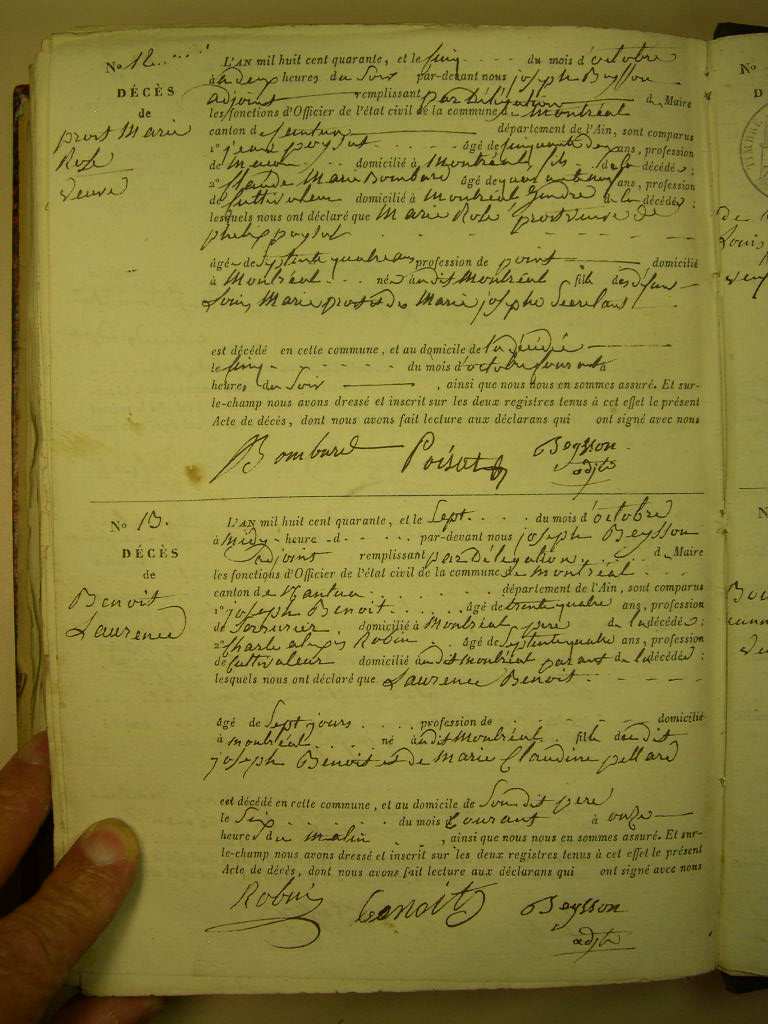 No 12
DÉCÈS
de
prost Marie
Roze
veuve
L'AN mil huit cent quarante, et le cinq du mois d'octobre
à deux heures du soir par-devant nous joseph Beysson
adjoint remplissant par Délégation du Maire
les fonctions d'Officier de l'état civil de la commune de Montréal
canton de département de l'Ain, sont comparus
1° jean poysot âgé de ans, profession
de domicilié à Montréal fils de la décédée;
2° Claude Marie Bombard âgé de ans, profession
de Cultivateur domicilié à Montréal Gendre de la décédée;
lesquels nous ont déclaré que Marie Roze prost veuve de
poysot
âgé de septente quatre ans profession de point domicilié
à Montréal né audit Montréal fille des defunts
Louis Marie prost et de Marie josephe
est décédé en cette commune, et au domicile de la décédée
le cinq du mois d'octobre à
heures du soir, ainsi que nous nous en sommes assuré. Et sur-
le-champ nous avons dressé et inscrit sur les deux registres tenus à cet effet le présent
Acte de décès, dont nous avons fait lecture aux déclarans qui ont signé avec nous
Bombard Poisat Beysson
adjt
No 13.
DÉCÈS
de
Benoit
Laurence
L'AN mil huit cent quarante, et le Sept du mois d'octobre
à Midy heure d par-devant nous joseph Beysson
adjoint remplissant par Délégation du Maire
les fonctions d'Officier de l'état civil de la commune de Montréal
canton de Nantua département de l'Ain, sont comparus
1° joseph Benoit âgé de trente quatre ans, profession
de Serrurier domicilié à Montréal père de la décédée;
2° Charle alexis Robin âgé de septente quatre ans, profession
de Cultivateur domicilié audit Montréal parent de la décédée;
lesquels nous ont déclaré que Laurence Benoit
âgé de Sept jours profession de domicilié
à montréal né audit Montréal fille dudit
joseph Benoit et de Marie Claudine pellard
est décédé en cette commune, et au domicile de Sondit père
le Six du mois Courant à onze
heures du matin, ainsi que nous nous en sommes assuré. Et sur-
le-champ nous avons dressé et inscrit sur les deux registres tenus à cet effet le présent
Acte de décès, dont nous avons fait lecture aux déclarans qui ont signé avec nous
Robin Benoit Beysson
adjt
No
D
Louis
No
D